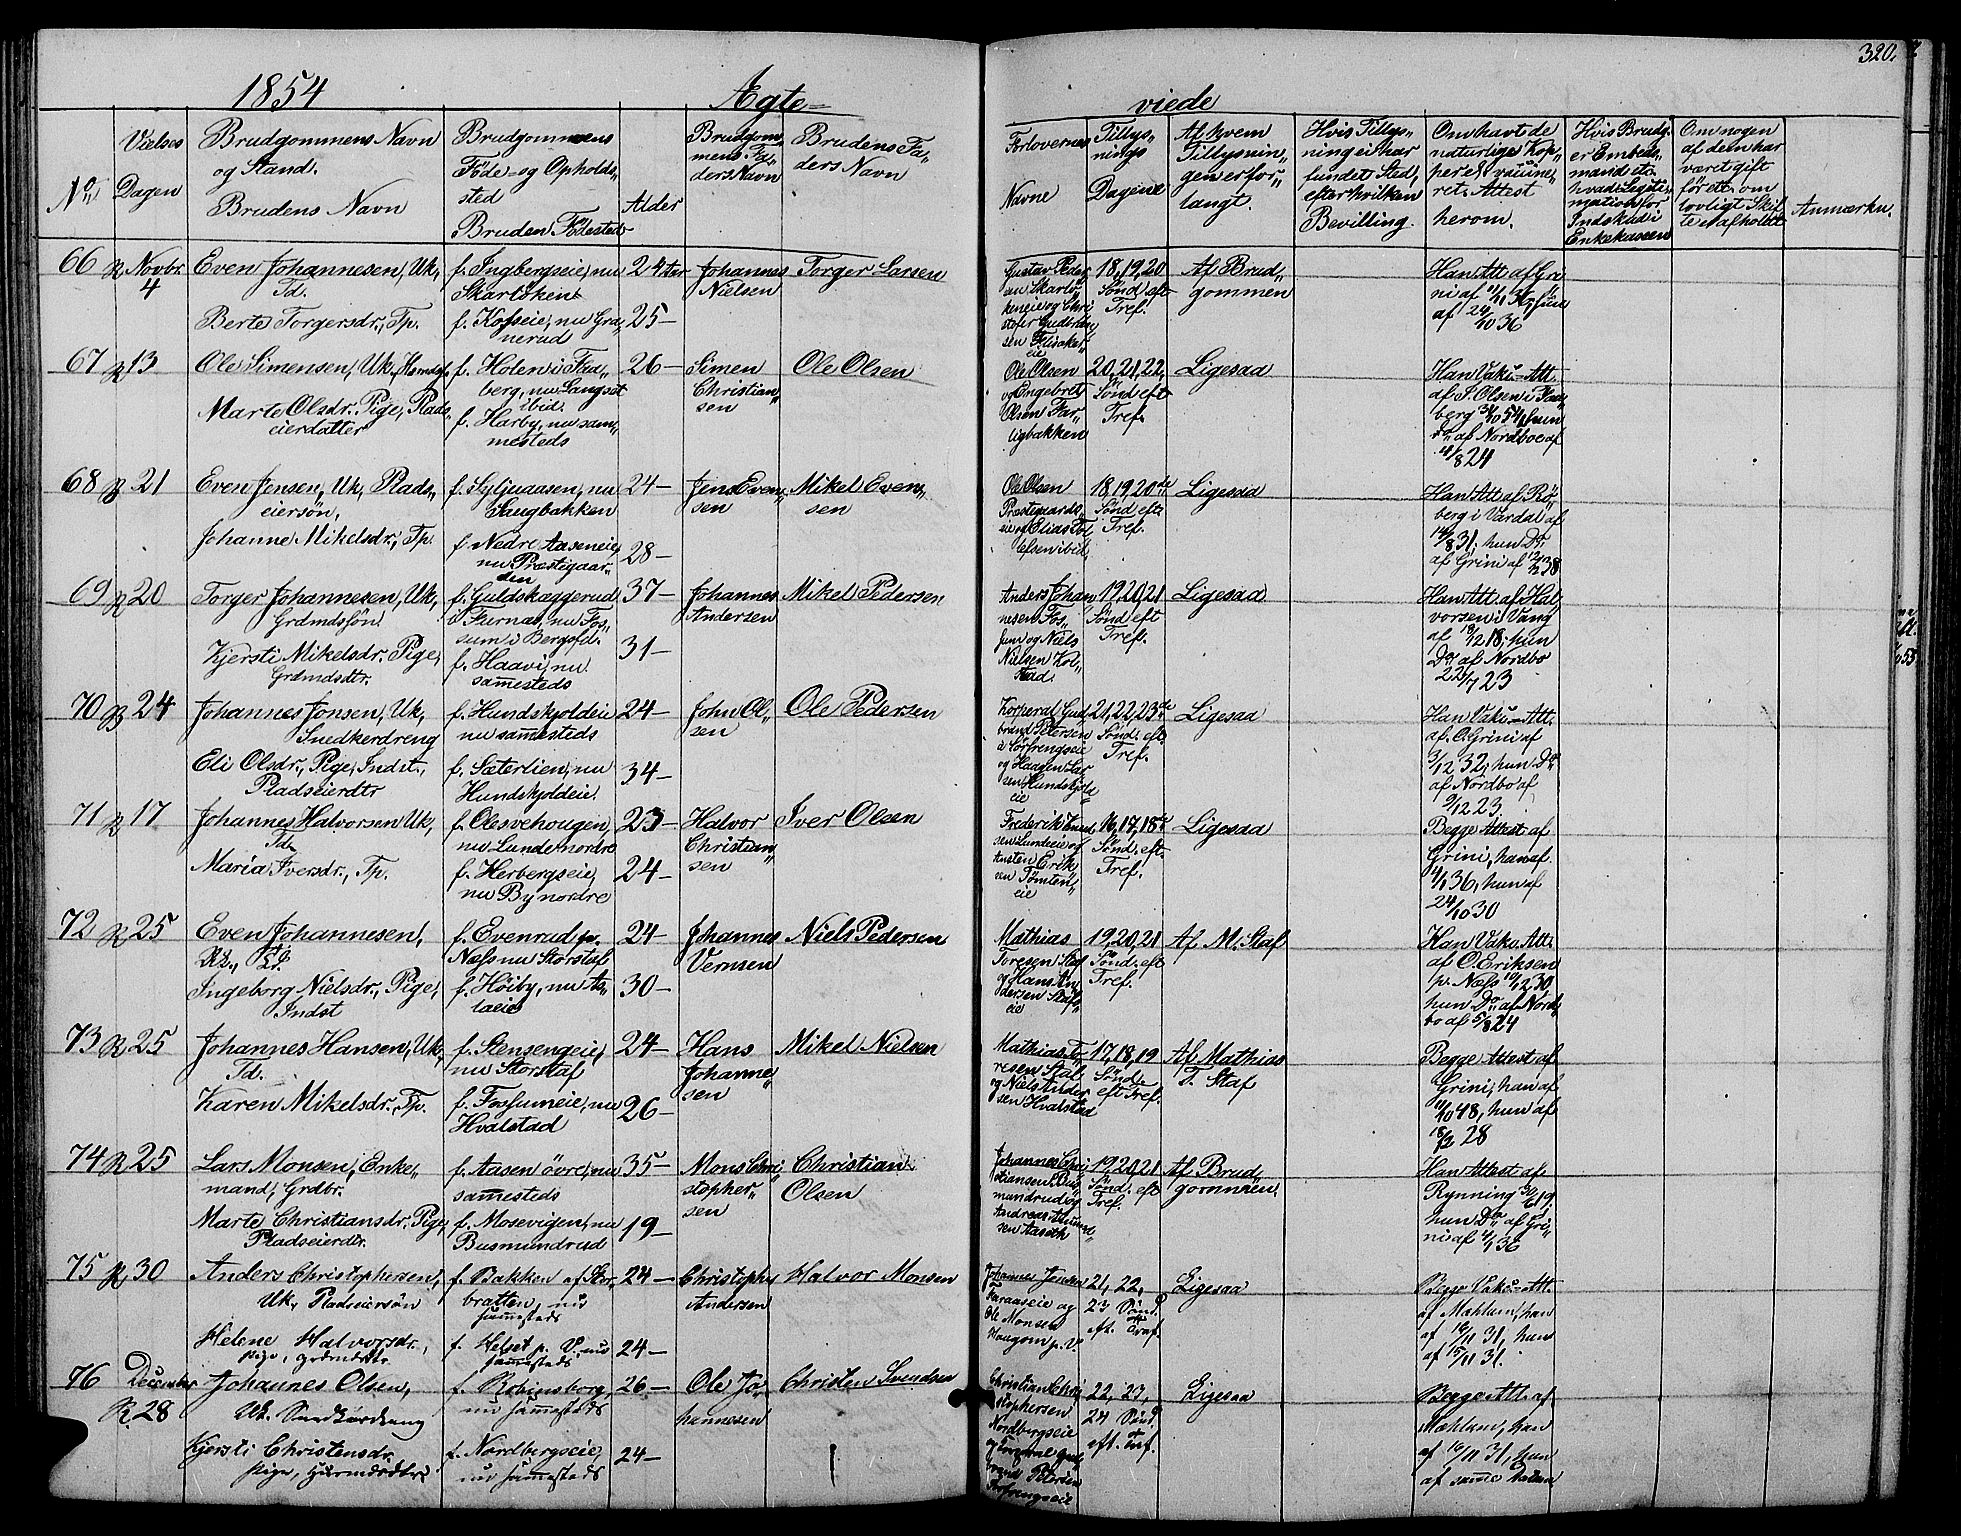 320.
1854 Ægte= viede
No. Vielses Dagen
Brudgommens Navn og Stand. Brudens Navn
Brudgommens Föde- og Opholds„ sted Bruden Födested
Alder
Brudgom„ mens Fa„ ders Navn
Brudens Fa„ ders Navn
Forlovernes Navne
Tillys„ nings Dagene
Af hvem Tillysnin„ gen er for„ langt.
Hvis Tillys„ ning ei har fundet Sted, efter hvilken Bevilling.
Om havt de naturlige Kop„ per el. vaccine„ ret. Attest herom.
Hvis Brudg. er Embeds„ mand etc. hvad Legiti„ mation for Indskud i Enkekassen
Om nogen af dem har været gift før ett. om lovligt Skif„ te er afholdt
Anmærkn.
66 Novbr. 4
Even Johannesen, Uk, Td.
Berte Torgersdr., Tp.
f. Ingbergseie, nu Skarloken
f. Kosseie, nu Gra„ nerud
24 Aar
25 —
Johannes Nielsen
Torger Larsen
18, 19, 20 Sönd. eft Tref.
Af Brud„ gommen
Han Att. af Gri„ ni af
af 24/10 36
67 13
Ole Simensen, Uk,
Marte Olsdr. Pige, Plads„ eierdatter
f. Holen i Faa„ berg, nu Langset ibid.
f. Harby, nu sam„ mesteds
26 —
Simen Christian„ sen
Ole Olsen
Ole Olsen og Engebret Olsen Far„ ligbakken
20, 21, 22, Sönd. eft Tref.
Ligesaa
Han Vakc.-Att. af P. Olsen i Faa„ berg 54, hun Do. af Nordboe af 18/8 24
68 21
Even Jensen, Uk, Plads„ eiersön,
Johanne Mikelsdr., Tp.
f. Syljuaasen, nu Saugbakken
f. Nedre Aaseneie, nu Præstgaar„ den
24 —
28 —
Jens Even„ sen
Mikel Even„ sen
Ole Olsen Præstgaards„ eie og Elias ibid
18, 19, 20de Sönd. eft. Tref.
Ligesaa
Han Att. af Rö„ berg i Vardal af 14/8 31. hun Do. af Grini af 38
69 20
Torger Johannesen, Uk, Grdmdssön.
Kjersti Mikelsdr. Pige, Grdmdsdtr.
f. Guldskæggerud i Furnæs, nu Fos„ sum i Bergsfd.
f. Haavi, nu sam̄esteds
37 —
31 —
Johannes Andersen
Mikel Pedersen
Anders Johan„ nesen Fos„ sum og Niels Nielsen Kol„ stad.
19, 20, 21 Sönd. eft Tref.
Ligesaa
Han Att. af Hal„ vorsen i Vang af 18/12 18, hun Do. af Nordbo 22/7 23
70 24
Johannes Jonsen, Uk, Snedkerdreng
Eli Olsdr., Pige, Indst., Pladseierdtr
f. Hundskjoldeie nu sam̄esteds
f. Sæterlien, nu Hundskjoldeie.
24 —
34 —
John Ol„ sen
Ole Pedersen
Korperal Gud„ brand Petersen Sörfrengseie og Haagen Lar„ sen Hundskjold„ eie
21, 22, 23de Sönd. eft. Tref.
Ligesaa
Han Vakc.-Att. af O. Grini af 3/12 32, hun Do. af Nordbo af 9/12 23.
71 17
Johannes Halvorsen Uk, Td.
Maria Iversdr., Tp.
f. Olesvehougen, nu Lunde nordre
f. Herbergseie, nu By nordre
23 —
24 —
Halvor Christian„ sen
Iver Olsen
Frederik Knud„ sen Lundeeie og Austen Erik„ sen Tömten„ eie
16, 17, 18de Sönd. eft. Tref.
Ligesaa
Begge Attest af Grini, han af 4/1 36, hun af 24/10 30
72 25
Even Johannesen,
Ingeborg Nielsdr., Pige, Indst
f. Evenrud pr. Næss nu Storstaf
f. Höiby, nu
24 —
30 —
Johannes Vernsen
Niels Pedersen
Mathias Toresen Staf og Hans An„ dersen Staf„ eie
19, 20, 21 Sönd. eft Tref.
Af M. Staf
Han Vakc. Att. af O. Eriksen p. Næss 10/12 30, hun Do. af Nord„ bo af 5/8 24
73 25
Johannes Hansen, Uk, Td.
Karen Mikelsdr., Tp.
f. Stensengeie, nu Storstaf
f. Fossumeie, nu Hvalstad
24 —
26 —
Hans Johanne„ sen
Mikel Nielsen
Mathias To„ resen Staf og Niels Ander„ sen Hvalstad
17, 18, 19 Sönd. eft Tref.
Af Mathias T. Staf
Begge Attest af Grini, han af 11/10 48, hun af 18/2 28
74 25
Lars Monsen, Enke„ mand, Grdbr.
Marte Christiansdr. Pige, Pladseierdtr.
f. Aasen övre, nu sam̄esteds
f. Mosevigen, nu Busmundrud
35 —
19 —
Mons Chri„ stopher„ sen
Christian Olsen
Johannes Chri„ stiansen Bus„ mundrud og Andreas Amund„ sen Aaseth
19, 20, 21 Sönd. eft Tref.
Af Brud„ gommen.
Han Attest af Rynning 19, hun Do. af Gri„ ni af 4/1 36
75 30
Anders Christophersen, Uk, Pladseiersön
Helene Halvorsdr., Pige, Grdmdsdtr.
f. Bakken af Stor„ bratten, nu sam̄esteds
f. Helset p. V. nu sam̄esteds
24 —
24 —
Christophr Andersen
Halvor Monsen
Johannes Jensen Furaaseie og Ole Monsen Haugom p. V.
21, 22, 23 Sönd. eft. Tref.
Ligesaa
Begge Vakc-Att. af Mæhlum, han af 16/11 31, hun af 15/11 31.
76 December 28
Johannes Olsen, Uk. Snedkerdreng
Kjersti Christensdr. Pige, Gaarmdsdtr.
f. Robinsborg, nu sam̄esteds
f. Nordbergseie, nu sam̄esteds
26 —
24 —
Ole Jo„ hannesen
Christen Svendsen
Christian Chri„ stophersen Nordbergseie og Korporal Gud„ brand Petersen Sörfrengseie
22, 23, 24 Sönd. eft. Tref.
Ligesaa
Begge Att. af Mæhlum, han af 16/11 31, hun af samme Datum